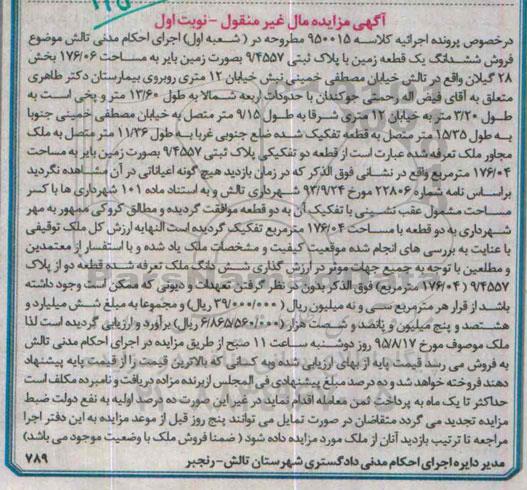 آگهی مزایده مال غیر منقول - نوبت اول
درخصوص پرونده اجرائیه کلاسه ۹۵۰۰۱۵ مطروحه در ( شعبه اول) اجرای احکام مدنی تالش موضوع
فروش ششدانگ یک قطعه زمین با پلاک ثبتی ۹/۴۵۵۷ بصورت زمین بایر به مساحت ۱۷۶/۰۶ بخش
۲۸ گیلان واقع در تالش خیابان مصطفی خمینی نبش خیابان ۱۲ متری روبروی بیمارستان دکتر طاهری
متعلق به آقای فیض اله رحمتی جوکندان با حدودات اربعه شمالا به طول ۱۳/۶۰ متر و پخی است به
طول ۳/۲۰ متر به خیابان ۱۲ متری شرقا به طول ۹/۱۵ متر متصل به خیابان مصطفی خمینی جنوبا
به طول ۱۵/۳۵ متر متصل به قطعه تفکیک شده ضلع جنوبی غربا به طول ۱۱/۳۶ متر متصل به ملک
مجاور ملک تعرفه شده عبارت است از قطعه دو تفکیکی پلاک ثبتی ۹/۴۵۵۷ بصورت زمین بایر به مساحت
۱۷۶/۰۴ مترمربع واقع در نشانی فوق الذکر که در زمان بازدید هیچ گونه اعیاناتی در آن مشاهده نگردید
براساس نامه شماره ۲۲۸۰۶ مورخ ۹۳/۹/۲۴ شهرداری تالش و به استناد ماده ۱۰۱ شهرداری ها با کسر
مساحت مشمول عقب نشینی با تفکیک آن به دو قطعه موافقت گردیده و مطالق کروکی ممهور به مهر
شهرداری به دو قطعه با مساحت ۱۷۶/۰۴ مترمربع تفکیک گردیده است النهایه ارزش کل ملک توقیفی
با عنایت به بررسی های انجام شده موقعیت کیفیت و مشخصات ملک یاد شده و با استفسار از معتمدین
و مطلعین با توجه به جمیع جهات موثر در ارزش گذاری شش دانگ ملک تعرفه شده قطعه دو از پلاک
۹/۴۵۵۷ ( ۱۷۶/۰۴ مترمربع) فوق الذکر بدون در نظر گرفتن تعهدات و دیونی که ممکن است وجود داشته
باشد از قرار هر مترمربع سی و نه میلیون ریال ( ۳۹/۰۰۰/۰۰۰ ریال) و مجموعا به مبلغ شش میلیارد و
هشتصد و پنج میلیون و پانصد و شصت هزار (۶/۸۶۵/۵۶۰/۰۰۰ ریال) برآورد و ارزیابی گردیده است لذا
ملک موصوف مورخ ۹۵/۸/۱۷ روز دوشنبه ساعت ۱۱ صبح از طریق مزایده در اجرای احکام مدنی تالش
به فروش می رسد قیمت پایه از بهای ارزیابی شده وبه کسانی که بالاترین قیمت را از قیمت پایه پیشنهاد
دهند فروخته خواهد شد و ده درصد مبلغ پیشنهادی فی المجلس از برنده مزاده دریافت و نامبرده مکلف است
حداکثر تا یک ماه به پرداخت ثمن معامله اقدام نماید در غیر این صورت ده درصد اولیه به نفع دولت ضبط
مزایده تجدید می گردد متقاضان در صورت تمایل می توانند پنج روز قبل از موعد مزایده به این دفتر اجرا
مراجعه تا ترتیب بازدید آنان از ملک مورد مزایده داده شود ( ضمنا فروش ملک با وضعیت موجود می باشد)
مدیر دایره اجرای احکام مدنی دادگستری شهرستان تالش - رنجبر ۷۸۹